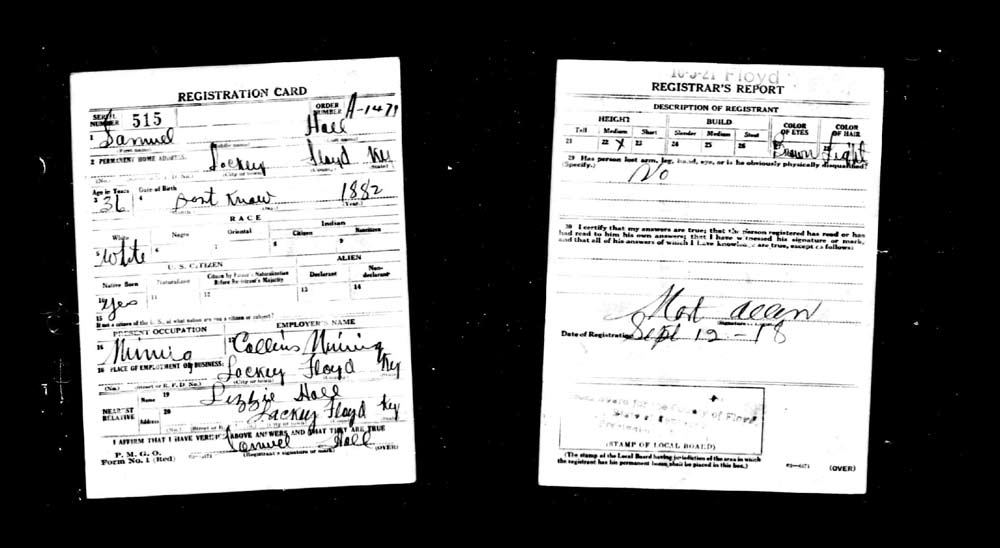 REGISTRATION CARD
SERIAL NUMBER 515 ORDER NUMBER A-1479
1 Samuel Hall
2 PERMANENT HOME ADDRESS: Lackey Floyd Ky
(No.) (City or town) (County) (State)
Age in Years Date of Birth
3 36 4 Dont Know 1882
(Year.)
RACE
White Negro Oriental Indian
Citizen Noncitizen
5 White 6 7 8 9
U. S. CITIZEN ALIEN
Native Born Naturalized Citizen by Father's Naturalization Before Registrant's Majority Declarant Non-declarant
10 Yes 11 12 13 14
15
If not a citizen of the U. S., of what nation are you a citizen or subject?
PRESENT OCCUPATION EMPLOYER'S NAME
16 Mining 17 Collins Mining
18 PLACE OF EMPLOYMENT OR BUSINESS: Lackey Floyd Ky
(No.) (Street or R. F. D. No.) (City or town)
NEAREST RELATIVE Name 19 Lizzie Hall
Address 20 Lackey Floyd Ky
(No.) (Street or R.
I AFFIRM THAT I HAVE VERIFIED ABOVE ANSWERS AND THAT THEY ARE TRUE
P. M. G. O.
Form No. 1 (Red) Samuel Hall
(Registrant's signature or mark) (OVER)
10-5-21 Floyd
REGISTRAR'S REPORT
DESCRIPTION OF REGISTRANT
HEIGHT BUILD COLOR OF EYES COLOR OF HAIR
Tall Medium Short Slender Medium Stout
21 22 X 23 24 25 26 Brown 28 Light
29 Has person lost arm, leg, hand, eye, or is he obviously physically disqualified?
(Specify.) No
30 I certify that my answers are true; that the person registered has read or has
had read to him his own answers; that I have witnessed his signature or mark,
and that all of his answers of which I have knowledge are true, except as follows:
Mart Allen
(Signature
Date of Registration Sept 12-18
Board for the County of Floyd
State of Kentucky
(STAMP OF LOCAL BOARD)
(The stamp of the Local Board having jurisdiction of the area in which
the registrant has his permanent home shall be placed in this box.)
(OVER)